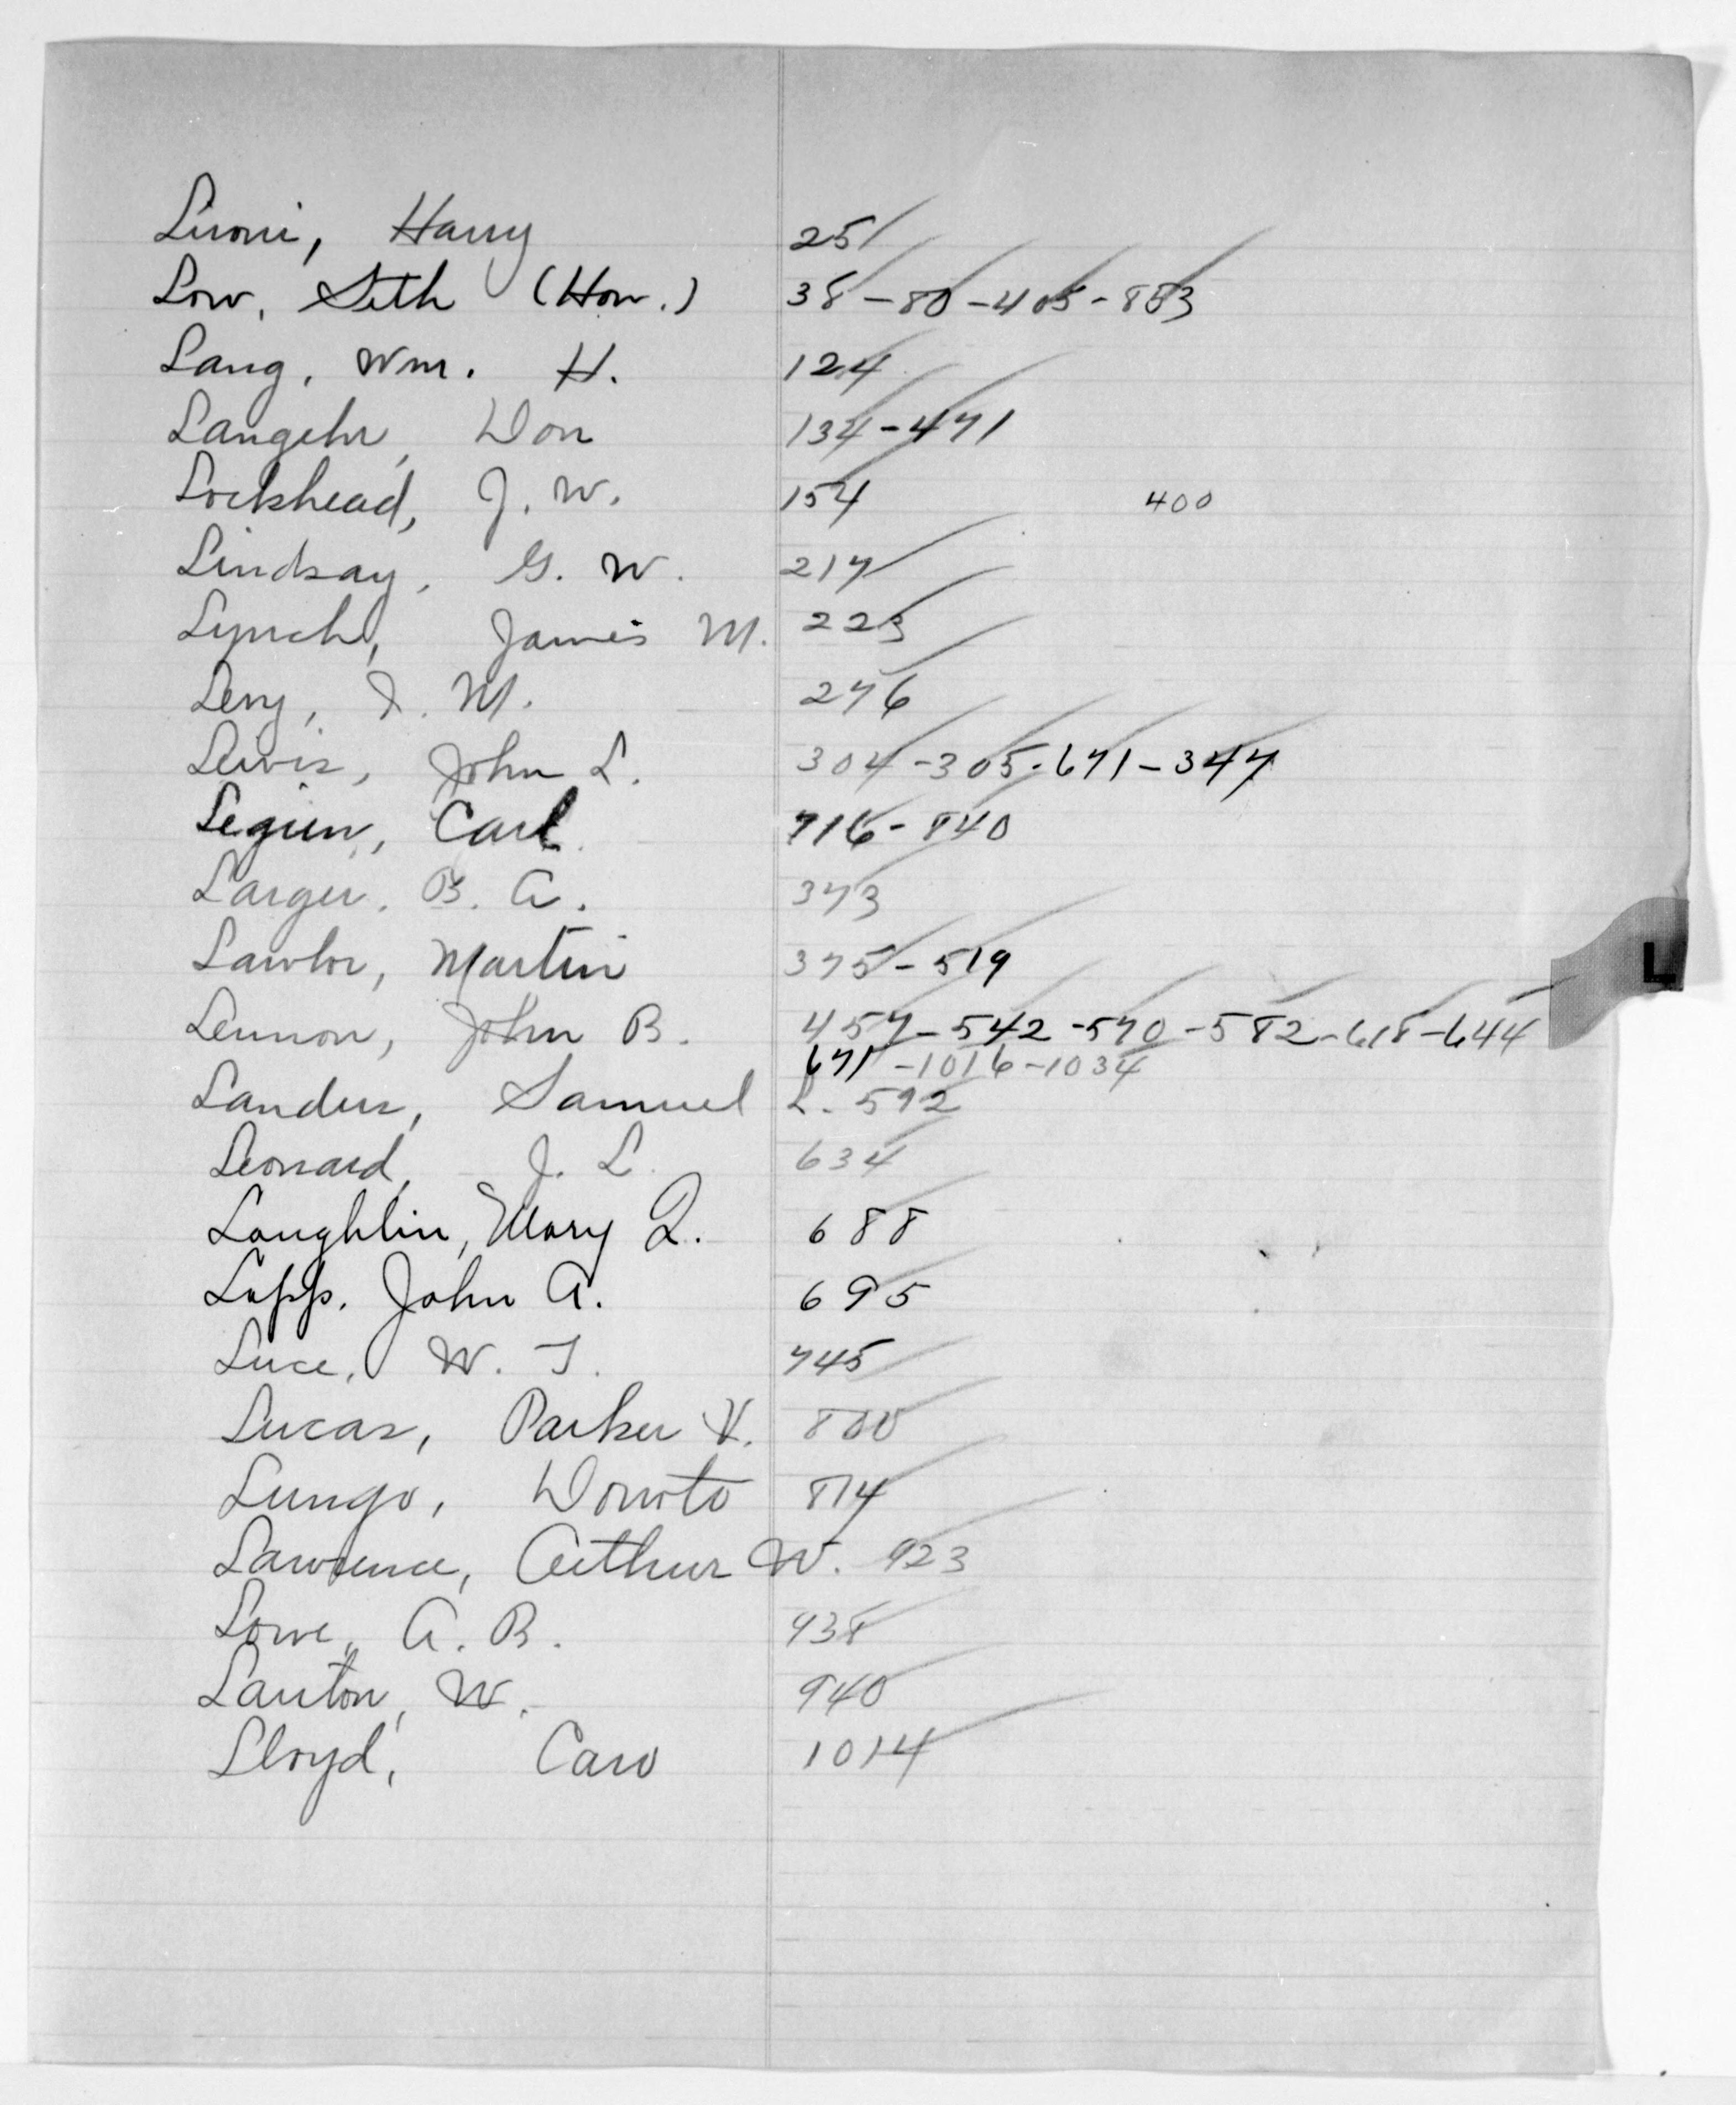 Lioni, Harry 25
Low, Seth (Hon.) 38-80-405-883
Lang, Wm. H. 124
Langehr, Don 134-471
Lockhead, J. W. 154 400
Lindsay, G. W. 217
Lynch, James M. 223
Levy, I. M. 276
Lewis, John L. 304-305-671-347
Legien, Carl 716-840
Larger, B. A. 373
Lawlor, Martin 375-519
L
Lennon, John B. 457-542-570-582-618-644
671-1016-1034
Landers, Samuel L. 592
Leonard, J. L. 634
Loughlin, Mary Q. 688
Lapp, John A. 695
Luce, W. T. 745
Lucas, Parker V. 800
Lungo, Donoto 814
Lawrence, Arthur W. 923
Lowe, A. B. 938
Lauton, W. 940
Lloyd, Caro 1014